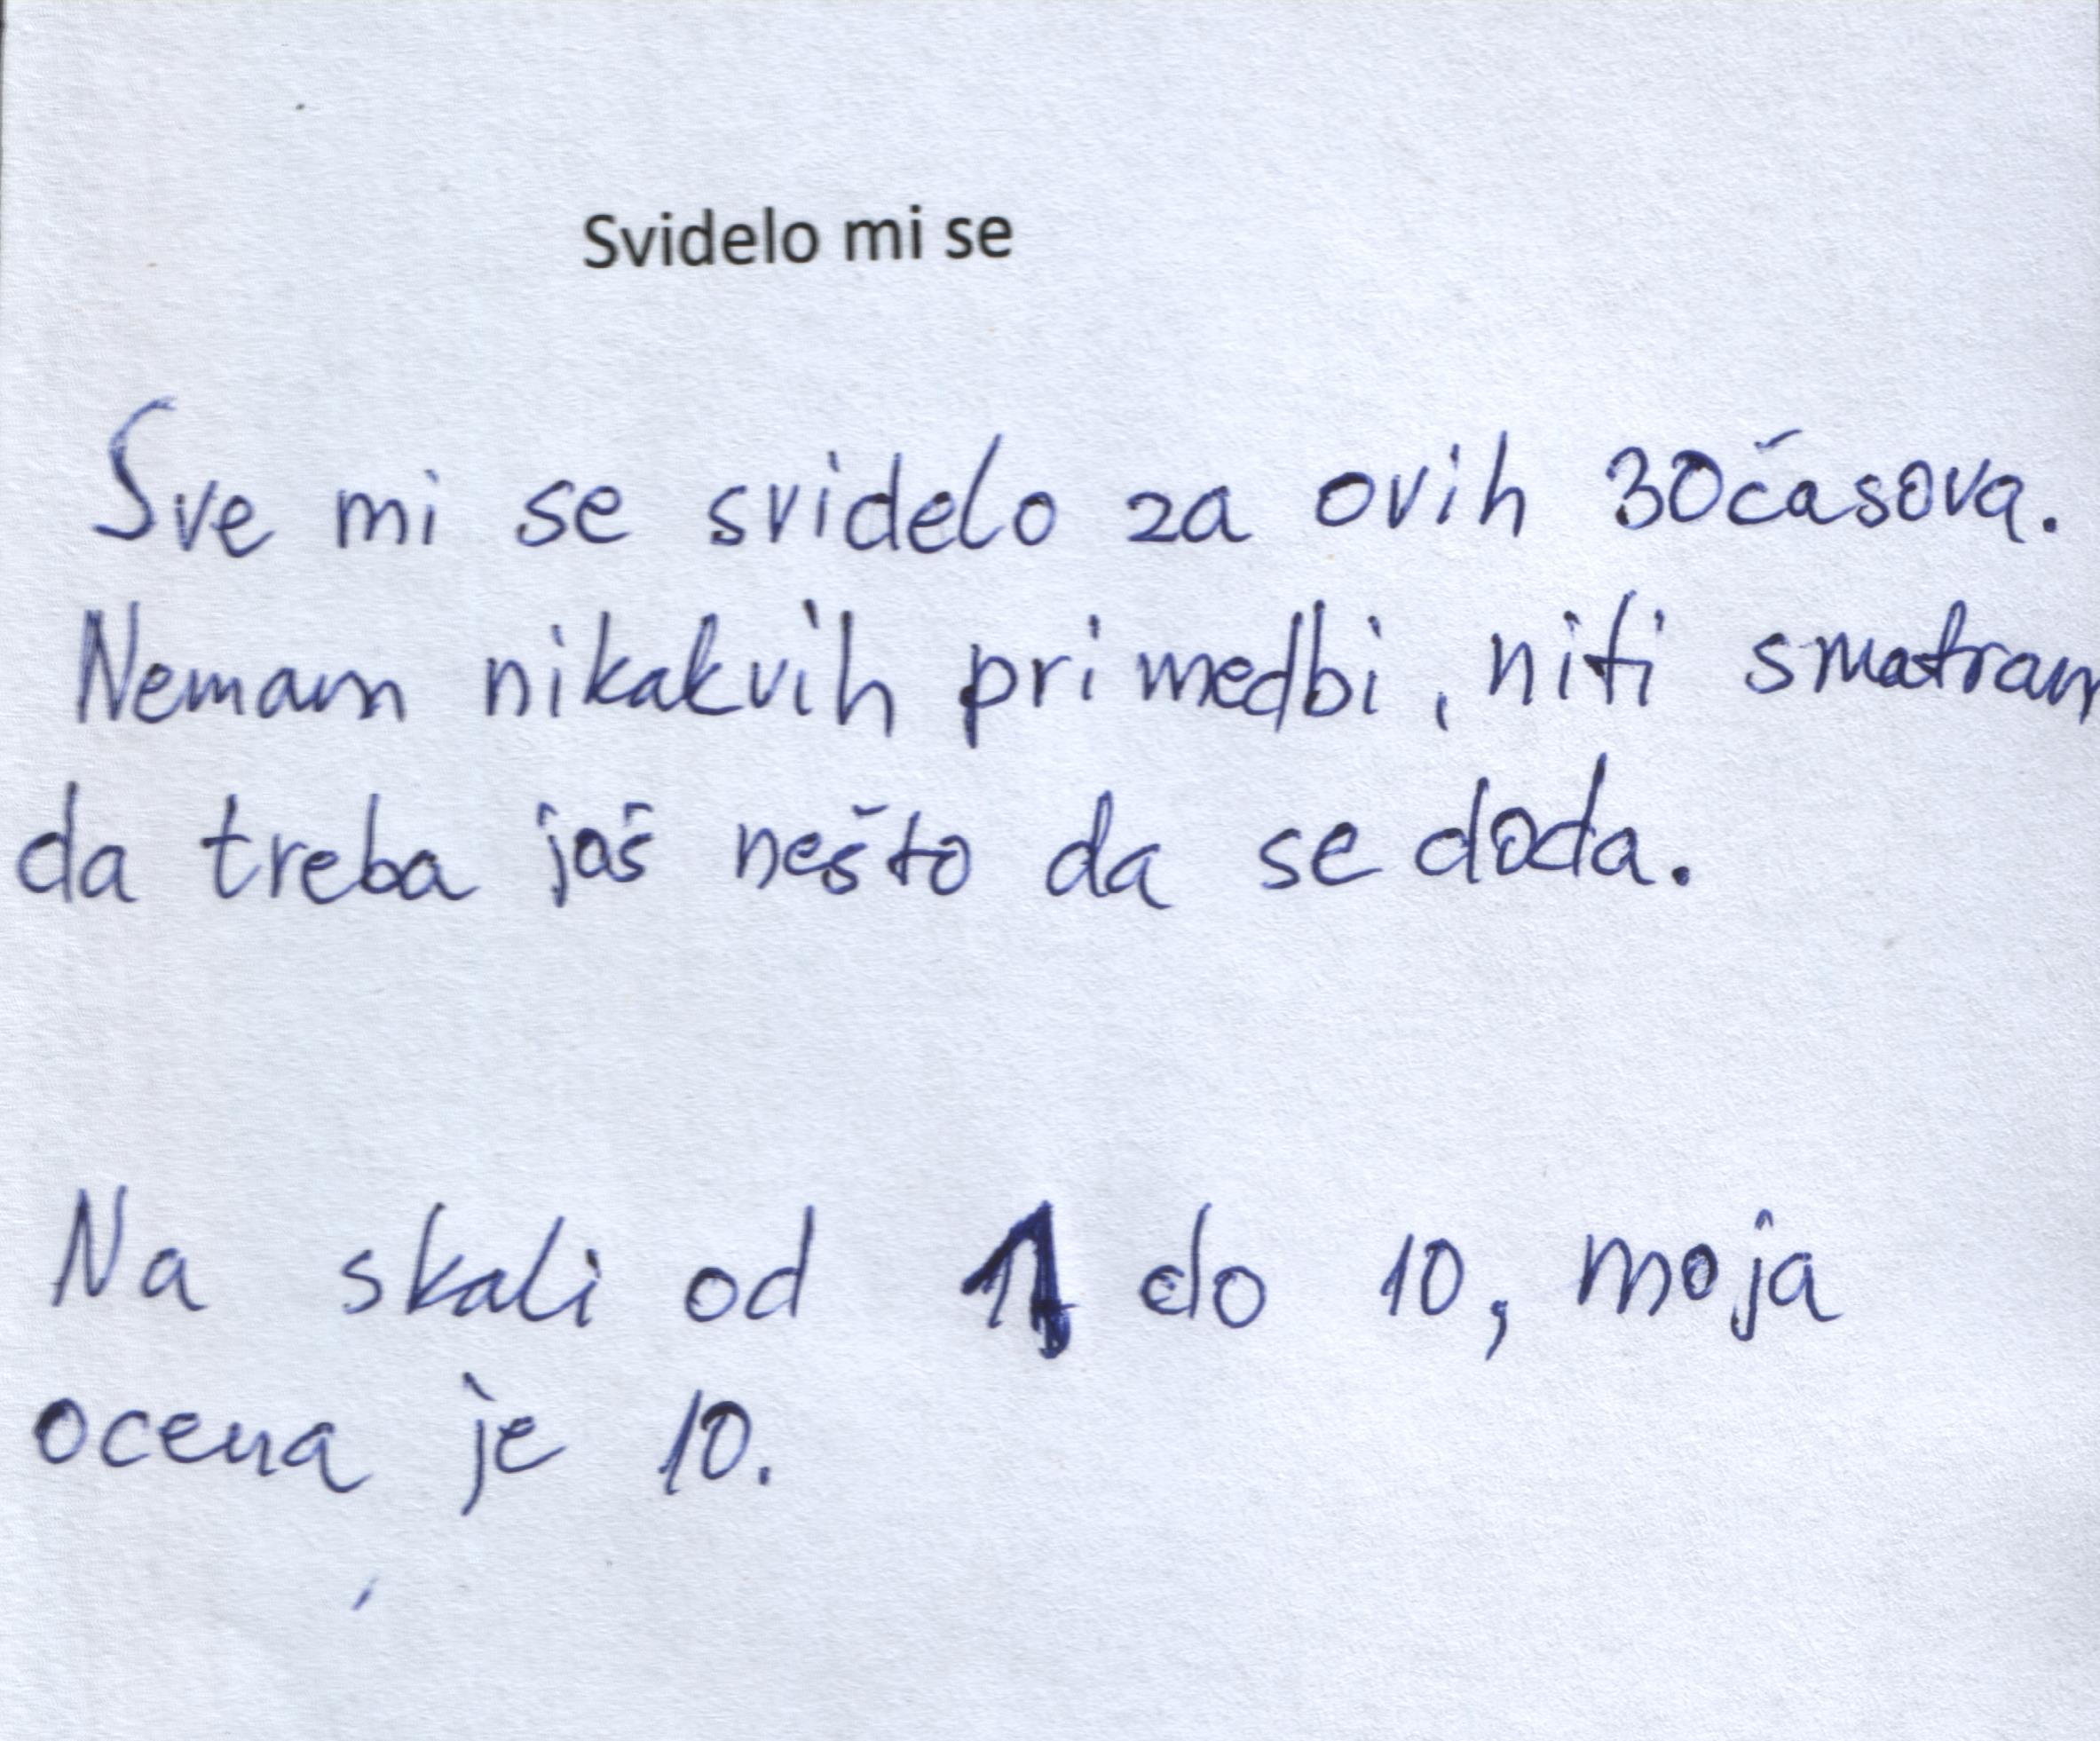 Svidelo mi se
Sve mi se svidelo za ovih 30 časova.
Nemam nikakvih primedbi, niti smatram
da treba još nešto da se doda.
Na skali od 1 do 10, moja
ocena je 10.